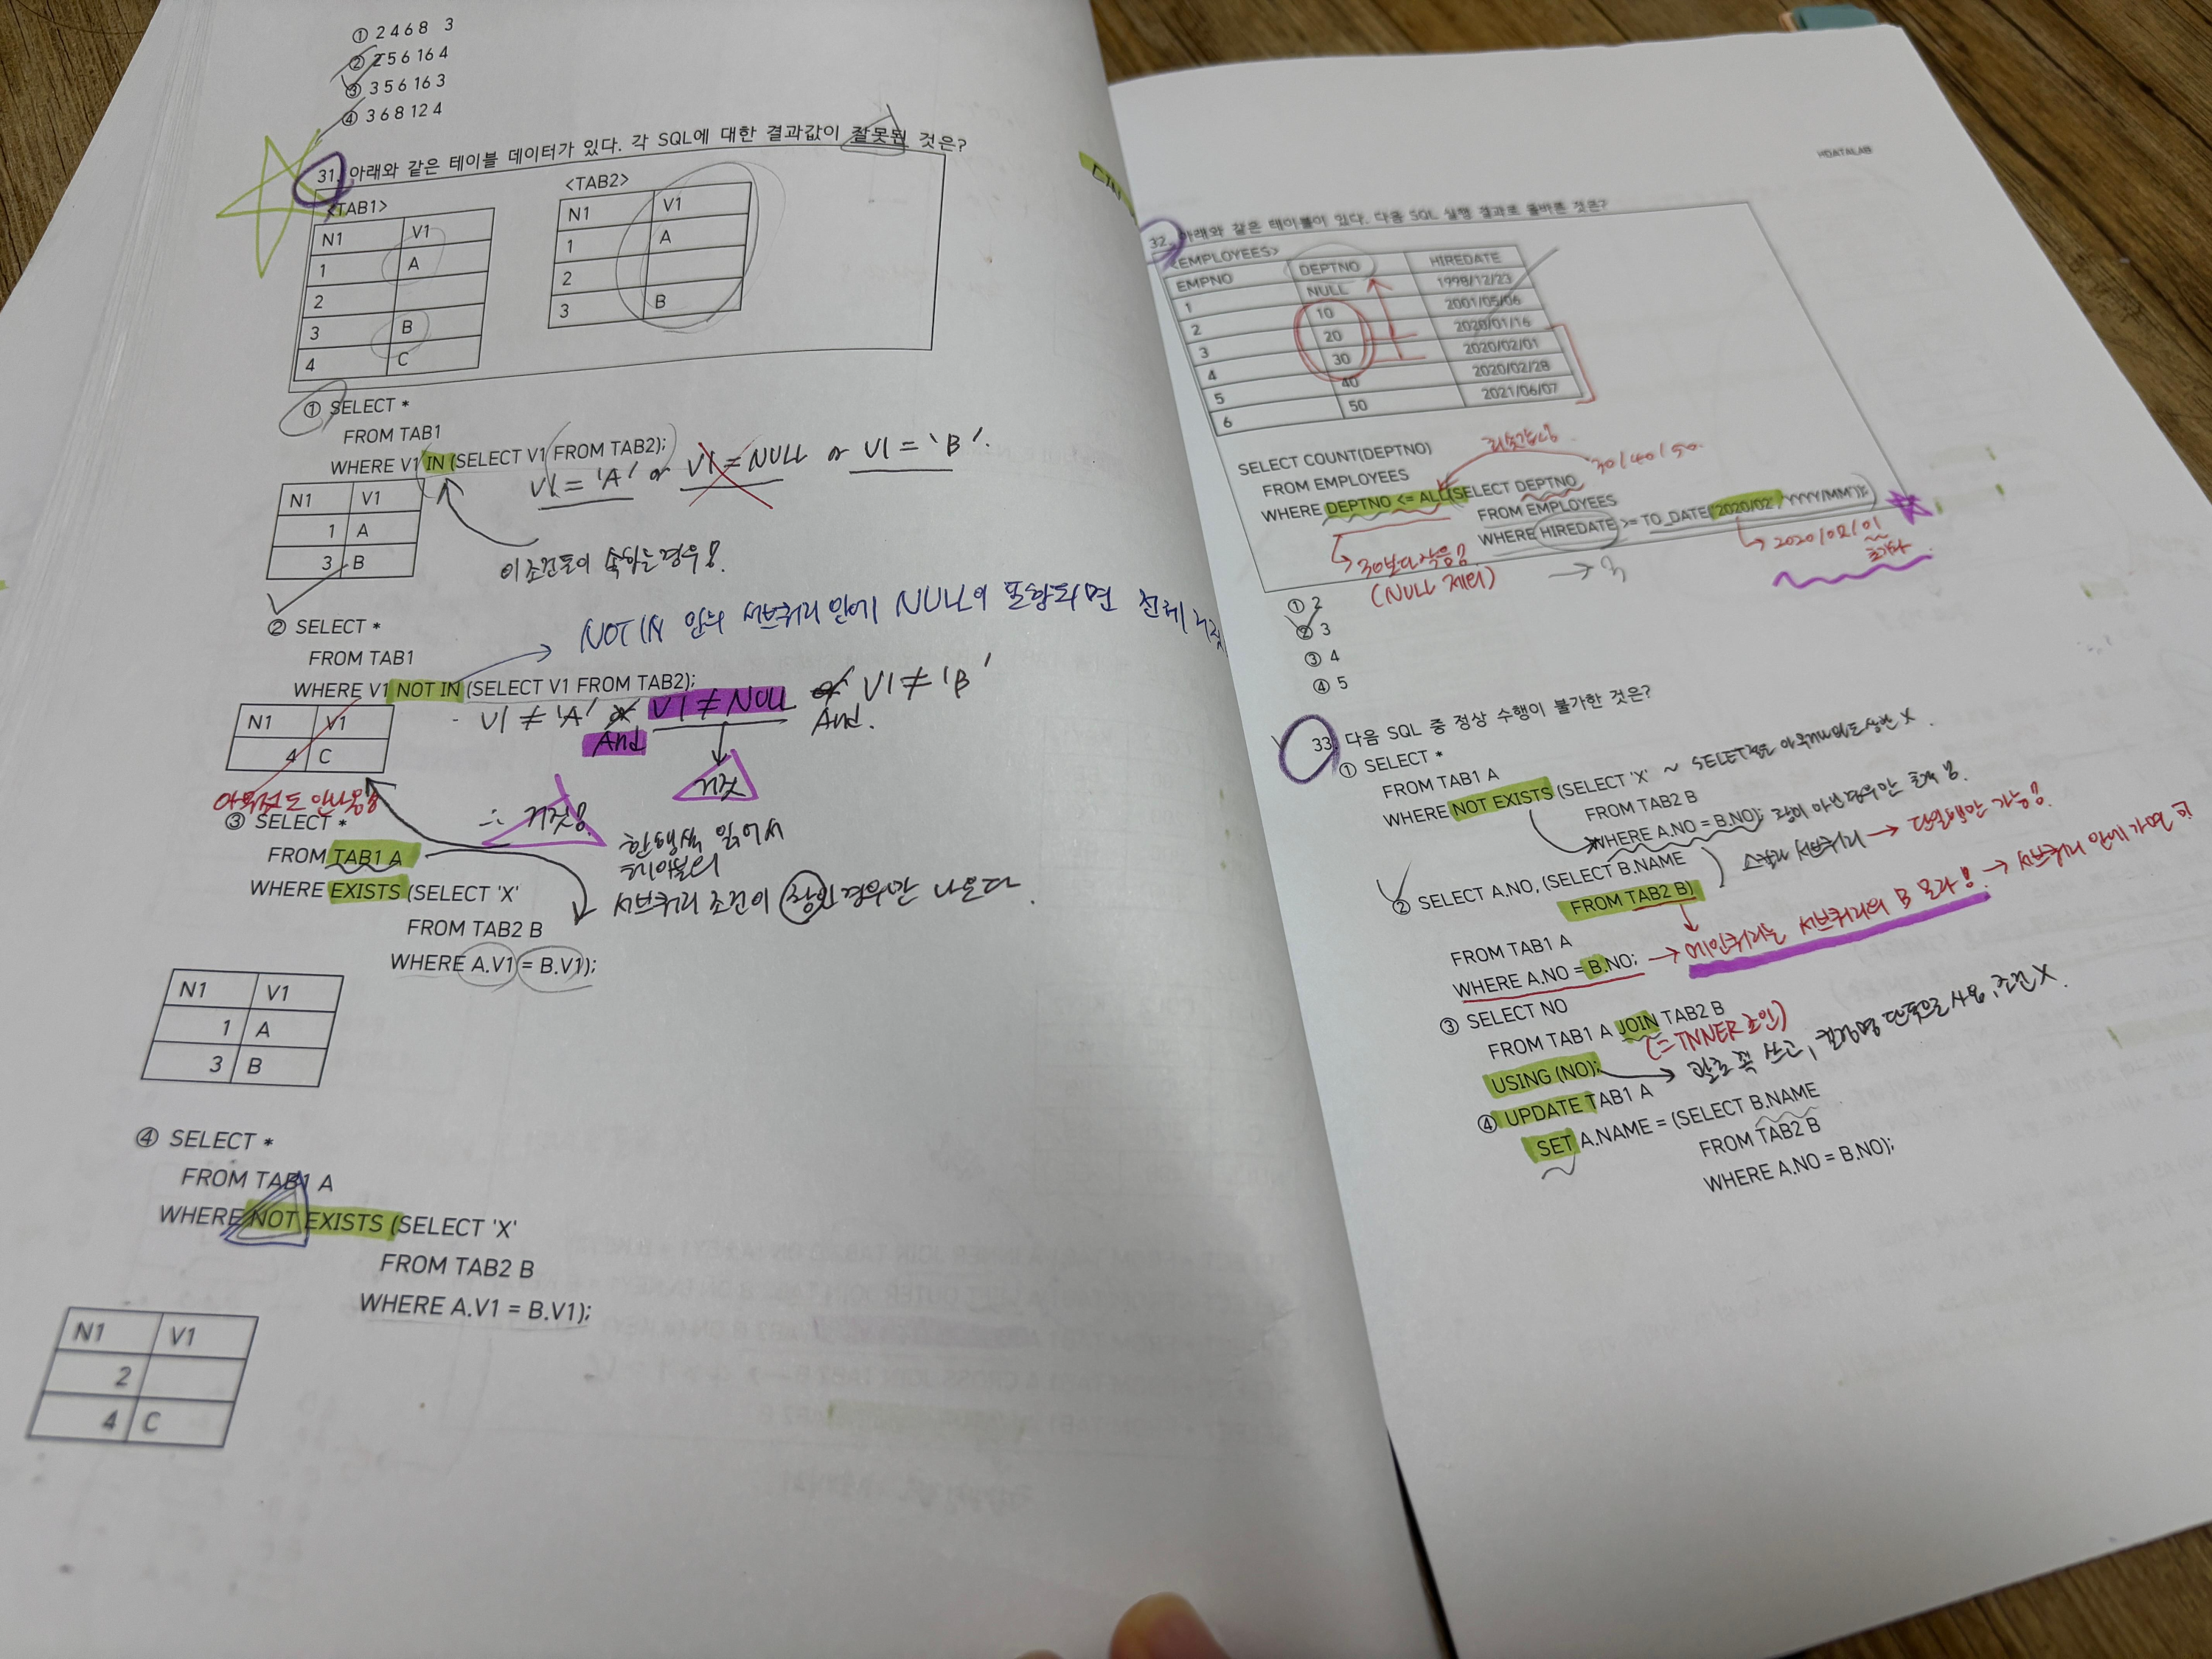 ① 2 4 6 8 3
② 2 5 6 16 4
③ 3 5 6 16 3
④ 3 6 8 12 4
31. 아래와 같은 테이블 데이터가 있다. 각 SQL에 대한 결과값이 잘못된 것은?
<TAB1>
N1 V1
1 A
2
3 B
4 C
<TAB2>
N1 V1
1 A
2
3 B
① SELECT *
FROM TAB1
WHERE V1 IN (SELECT V1 FROM TAB2);
V1 = 'A' or V1 = NULL or V1 = 'B'.
N1 V1
1 A
3 B
이 조건들이 속하는 경우!
② SELECT *
FROM TAB1
WHERE V1 NOT IN (SELECT V1 FROM TAB2);
NOT IN 안의 서브쿼리 안에 NULL이 포함되면 전체
V1 ≠ 'A' or V1 ≠ NULL or V1 ≠ 'B'
And And.
N1 V1
4 C
거짓
∴ 거짓!
③ SELECT *
FROM TAB1 A
WHERE EXISTS (SELECT 'X'
FROM TAB2 B
WHERE A.V1 = B.V1);
한행씩 읽어서
테이블의
서브쿼리 조건이 참인 경우만 나온다.
N1 V1
1 A
3 B
④ SELECT *
FROM TAB1 A
WHERE NOT EXISTS (SELECT 'X'
FROM TAB2 B
WHERE A.V1 = B.V1);
N1 V1
2
4 C
HDATALAB
32. 아래와 같은 테이블이 있다. 다음 SQL 실행 결과로 올바른 것은?
<EMPLOYEES>
EMPNO DEPTNO HIREDATE
1 NULL 1998/12/23
2 10 2001/05/06
3 20 2020/01/16
4 30 2020/02/01
5 40 2020/02/28
6 50 2021/06/07
SELECT COUNT(DEPTNO)
FROM EMPLOYEES
WHERE DEPTNO <= ALL(SELECT DEPTNO
FROM EMPLOYEES
WHERE HIREDATE >= TO_DATE('2020/02','YYYY/MM'));
최솟값
30/40/50.
30보다 작음!
(NULL 제외)
→ 3
2020/02/01
① 2
② 3
③ 4
④ 5
33. 다음 SQL 중 정상 수행이 불가한 것은?
① SELECT *
FROM TAB1 A
WHERE NOT EXISTS (SELECT 'X'
FROM TAB2 B
WHERE A.NO = B.NO);
참이 아닌 경우만 출력
② SELECT A.NO, (SELECT B.NAME
FROM TAB2 B)
FROM TAB1 A
WHERE A.NO = B.NO;
스칼라 서브쿼리 → 단일행만 가능!
→ 메인쿼리는 서브쿼리의 B 모라! → 서브쿼리 안에 가면
③ SELECT NO
FROM TAB1 A JOIN TAB2 B
(= INNER 조인)
USING (NO);
괄호 꼭 쓰고, 컬럼명 단독으로 사용, 조건 X.
④ UPDATE TAB1 A
SET A.NAME = (SELECT B.NAME
FROM TAB2 B
WHERE A.NO = B.NO);